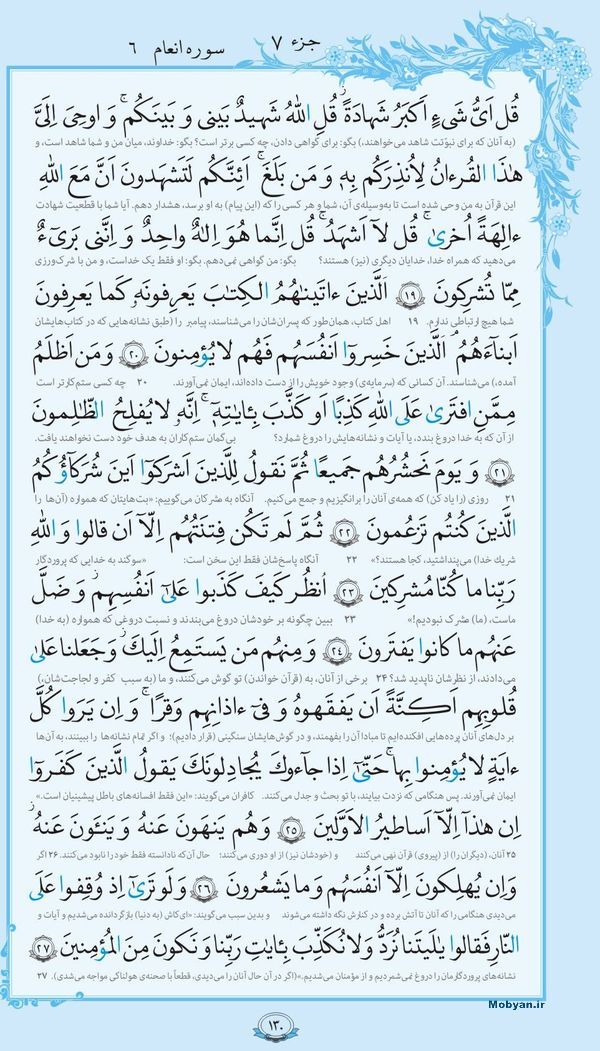 جزء ۷
سوره انعام ۶
قُل اَیُّ شَیءٍ اَکبَرُ شَهادَةً قُلِ اللهُ شَهیدٌ بَینی وَ بَینَکُم وَ اوحِیَ اِلَیَّ
(به آنان که برای نبوّتت شاهد می‌خواهند،) بگو: برای گواهی دادن، چه کسی برتر است؟ بگو: خداوند، میان من و شما شاهد است، و
هٰذَا القُرءانُ لِاُنذِرَکُم بِه وَ مَن بَلَغَ اَئِنَّکُم لَتَشهَدونَ اَنَّ مَعَ اللهِ
این قرآن به من وحی شده است تا به‌وسیله‌ی آن، شما و هر کسی را که (این پیام) به او برسد، هشدار دهم. آیا شما با قطعیت شهادت
ءالِهَةً اُخریٰ قُل لا اَشهَدُ قُل اِنَّما هُوَ اِلٰهٌ واحِدٌ وَ اِنَّنی بَریءٌ
می‌دهید که همراه خدا، خدایان دیگری (نیز) هستند؟ بگو: من گواهی نمی‌دهم. بگو: او فقط یک خداست، و من با شرک‌ورزی
مِمّا تُشرِکونَ ۱۹ اَلَّذینَ ءاتَیناهُمُ الکِتابَ یَعرِفونَه کَما یَعرِفونَ
شما هیچ ارتباطی ندارم. ۱۹ اهل کتاب، همان‌طور که پسران‌شان را می‌شناسند، پیامبر را (طبق نشانه‌هایی که در کتاب‌هایشان
اَبناءَهُم اَلَّذینَ خَسِروا اَنفُسَهُم فَهُم لا یُؤمِنونَ ۲۰ وَ مَن اَظلَمُ
آمده،) می‌شناسند. آن کسانی که (سرمایه‌ی) وجود خویش را از دست داده‌اند، ایمان نمی‌آورند. ۲۰ چه کسی ستم‌کارتر است
مِمَّنِ افتَریٰ عَلَی اللهِ کَذِبًا اَو کَذَّبَ بِـٔایاتِه اِنَّه لا یُفلِحُ الظّالِمونَ
از آن که به خدا دروغ بندد، یا آیات و نشانه‌هایش را دروغ شمارد؟ بی‌گمان ستم‌کاران به هدف خود دست نخواهند یافت.
۲۱ وَ یَومَ نَحشُرُهُم جَمیعًا ثُمَّ نَقولُ لِلَّذینَ اَشرَکوا اَینَ شُرَکاؤُکُمُ
۲۱ روزی (را یاد کن) که همه‌ی آنان را برانگیزیم و جمع می‌کنیم. آنگاه به مشرکان می‌گوییم: «بت‌هایتان که همواره (آن‌ها را
الَّذینَ کُنتُم تَزعُمونَ ۲۲ ثُمَّ لَم تَکُن فِتنَتُهُم اِلّا اَن قالوا وَ اللهِ
شریك خدا) می‌پنداشتید، کجا هستند؟» ۲۲ آنگاه پاسخ‌شان فقط این سخن است: «سوگند به خدایی که پروردگار
رَبِّنا ما کُنّا مُشرِکینَ ۲۳ اُنظُر کَیفَ کَذَبوا عَلیٰ اَنفُسِهِم وَ ضَلَّ
ماست، (ما) مشرک نبودیم!» ۲۳ ببین چگونه بر خودشان دروغ می‌بندند و نسبت دروغی که همواره (به خدا)
عَنهُم ما کانوا یَفتَرونَ ۲۴ وَ مِنهُم مَن یَستَمِعُ اِلَیكَ وَ جَعَلنا عَلیٰ
می‌دادند، از نظرشان ناپدید شد؟ ۲۴ برخی از آنان، به (قرآن خواندن) تو گوش می‌کنند، و ما (به سبب کفر و لجاجت‌شان،)
قُلوبِهِم اَکِنَّةً اَن یَفقَهوهُ وَ فی ءاذانِهِم وَقرًا وَ اِن یَرَوا کُلَّ
بر دل‌های آنان پرده‌هایی افکنده‌ایم تا مبادا آن را بفهمند، و در گوش‌هایشان سنگینی (قرار دادیم)؛ و اگر تمام نشانه‌ها را ببینند، به آن‌ها
ءایَةٍ لا یُؤمِنوا بِها حَتّیٰ اِذا جاءوكَ یُجادِلونَكَ یَقولُ الَّذینَ کَفَروا
ایمان نمی‌آورند. پس هنگامی که نزدت بیایند، با تو بحث و جدل می کنند. کافران می‌گویند: «این فقط افسانه‌های باطل پیشینیان است.»
اِن هٰذا اِلّا اَساطیرُ الاَوَّلینَ ۲۵ وَ هُم یَنهَونَ عَنهُ وَ یَنـَٔونَ عَنهُ
۲۵ آنان، (دیگران) را از (پیروی) قرآن نهی می‌کنند و (خودشان نیز) از او دوری می‌کنند؛ حال آن‌که نادانسته فقط خود را نابود می‌کنند. ۲۶ اگر
وَ اِن یُهلِکونَ اِلّا اَنفُسَهُم وَ ما یَشعُرونَ ۲۶ وَ لَو تَریٰ اِذ وُقِفوا عَلَی
می‌دیدی هنگامی را که آنان با آتش برده و در کنارش نگه داشته می شوند و بدین سبب می‌گویند: «ای‌کاش (به دنیا) بازگردانده می‌شدیم و آیات و
النّارِ فَقالوا یا لَیتَنا نُرَدُّ وَ لا نُکَذِّبَ بِـٔایاتِ رَبِّنا وَ نَکونَ مِنَ المُؤمِنینَ ۲۷
نشانه‌های پروردگارمان را دروغ نمی‌شمردیم و از مؤمنان می‌شدیم.» (اگر در آن حال آنان را می‌دیدی، قطعاً با صحنه‌ی هولناکی مواجه می‌شدی). ۲۷
Mobyan.ir
۱۳۰